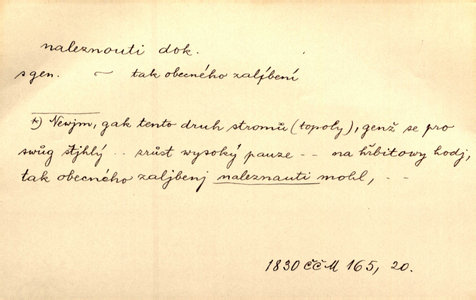 naleznouti dok.
s gen. ~ tak obecného zaljbení
*) Newjm, gak tento druh stromů (topoly), genž se pro
swůg stjhlý .. srůst wysoký pauze -- na hřbitowy hodj,
tak obecného zaljbenj naleznauti mohl, --
1830 ČČM 165, 20.